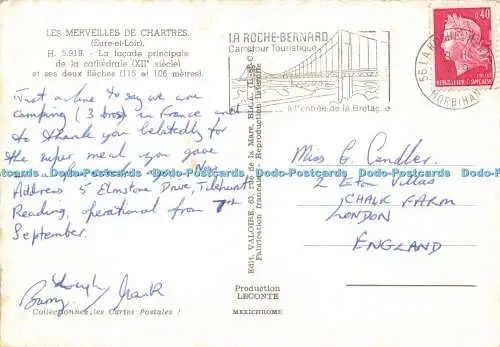 LES MERVEILLES DE CHARTRES.
(Eure-et-Loir).
H. 5.918. - La façade principale
de la cathédrale (XIIe siècle)
et ses deux flèches (115 et 106 mètres).
Just a line to say we are
camping (3 in France and
to thank you belatedly for
the super meal you gave
New
Address 5 Elmstone Drive, Tilehurst
Reading, operational from 7th
September.
Barry
Mark
Collectionnez les Cartes Postales !
Edit. VALOIRE, 63, rue de la Mare, Blois
Fabrication française - Reproduction interdite
LA ROCHE-BERNARD
Carrefour Touristique
à l'entrée de la Bretagne
56 LA ROCHE
MORBIHAN
0,40
Miss G. Candler.
2 Eton Villas
CHALK FARM
LONDON
ENGLAND
Production
LECONTE
MEXICHROME
Dodo-Postcards Dodo-Postcards Dodo-Postcards Dodo-Postcards Dodo-Postcards